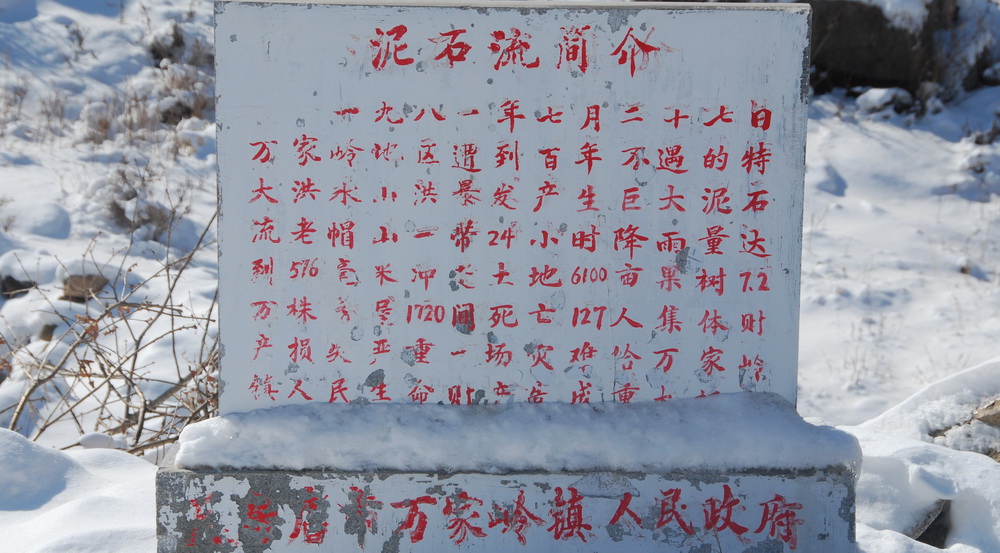 泥石流简介
一九八一年七月二十七日
万家岭地区遭到百年不遇的特
大洪水山洪暴发产生巨大泥石
流老帽山一带24小时降雨量达
到576毫米冲土地6100亩果树7.2
万株1720间死亡127人集体财
产损失亚重一场灾难给万家岭
人民生命财产成重
店市万家岭镇人民政府